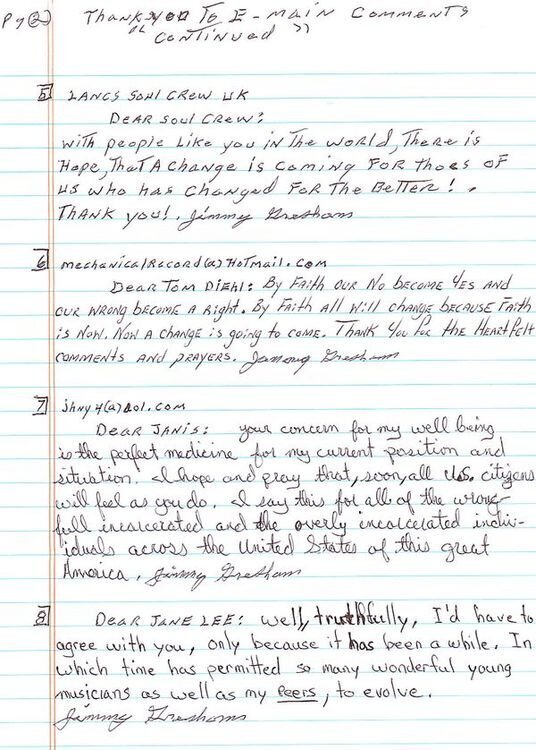 Pg(2) Thank you To E-main Comments
"Continued"
5 LANCS SOUL CREW UK
Dear Soul Crew:
With people like you in the world, There is
Hope, That A Change is Coming For thoes of
us who has Changed For The Better!.
Thank you!. Jimmy Gresham
6 mechanicalrecord(a)Hotmail.com
Dear Tom Diehl: By Faith our No become Yes and
our wrong become a Right. By Faith all will change because Faith
is Now. Now a change is going to come. Thank You for the Heartfelt
comments and prayers. Jimmy Gresham
7 jhny4(a)aol.com
Dear Janis: your concern for my well being
is the perfect medicine for my current position and
situation. I hope and pray that, soon, all U.S. citizens
will feel as you do. I say this for all of the wrong-
full incarcerated and the overly incarcerated indiv-
iduals across the United States of this great
America. Jimmy Gresham
8 Dear Jane Lee: Well, truthfully, I'd have to
agree with you, only because it has been a while. In
which time has permitted so many wonderful young
musicians as well as my Peers, to evolve.
Jimmy Gresham